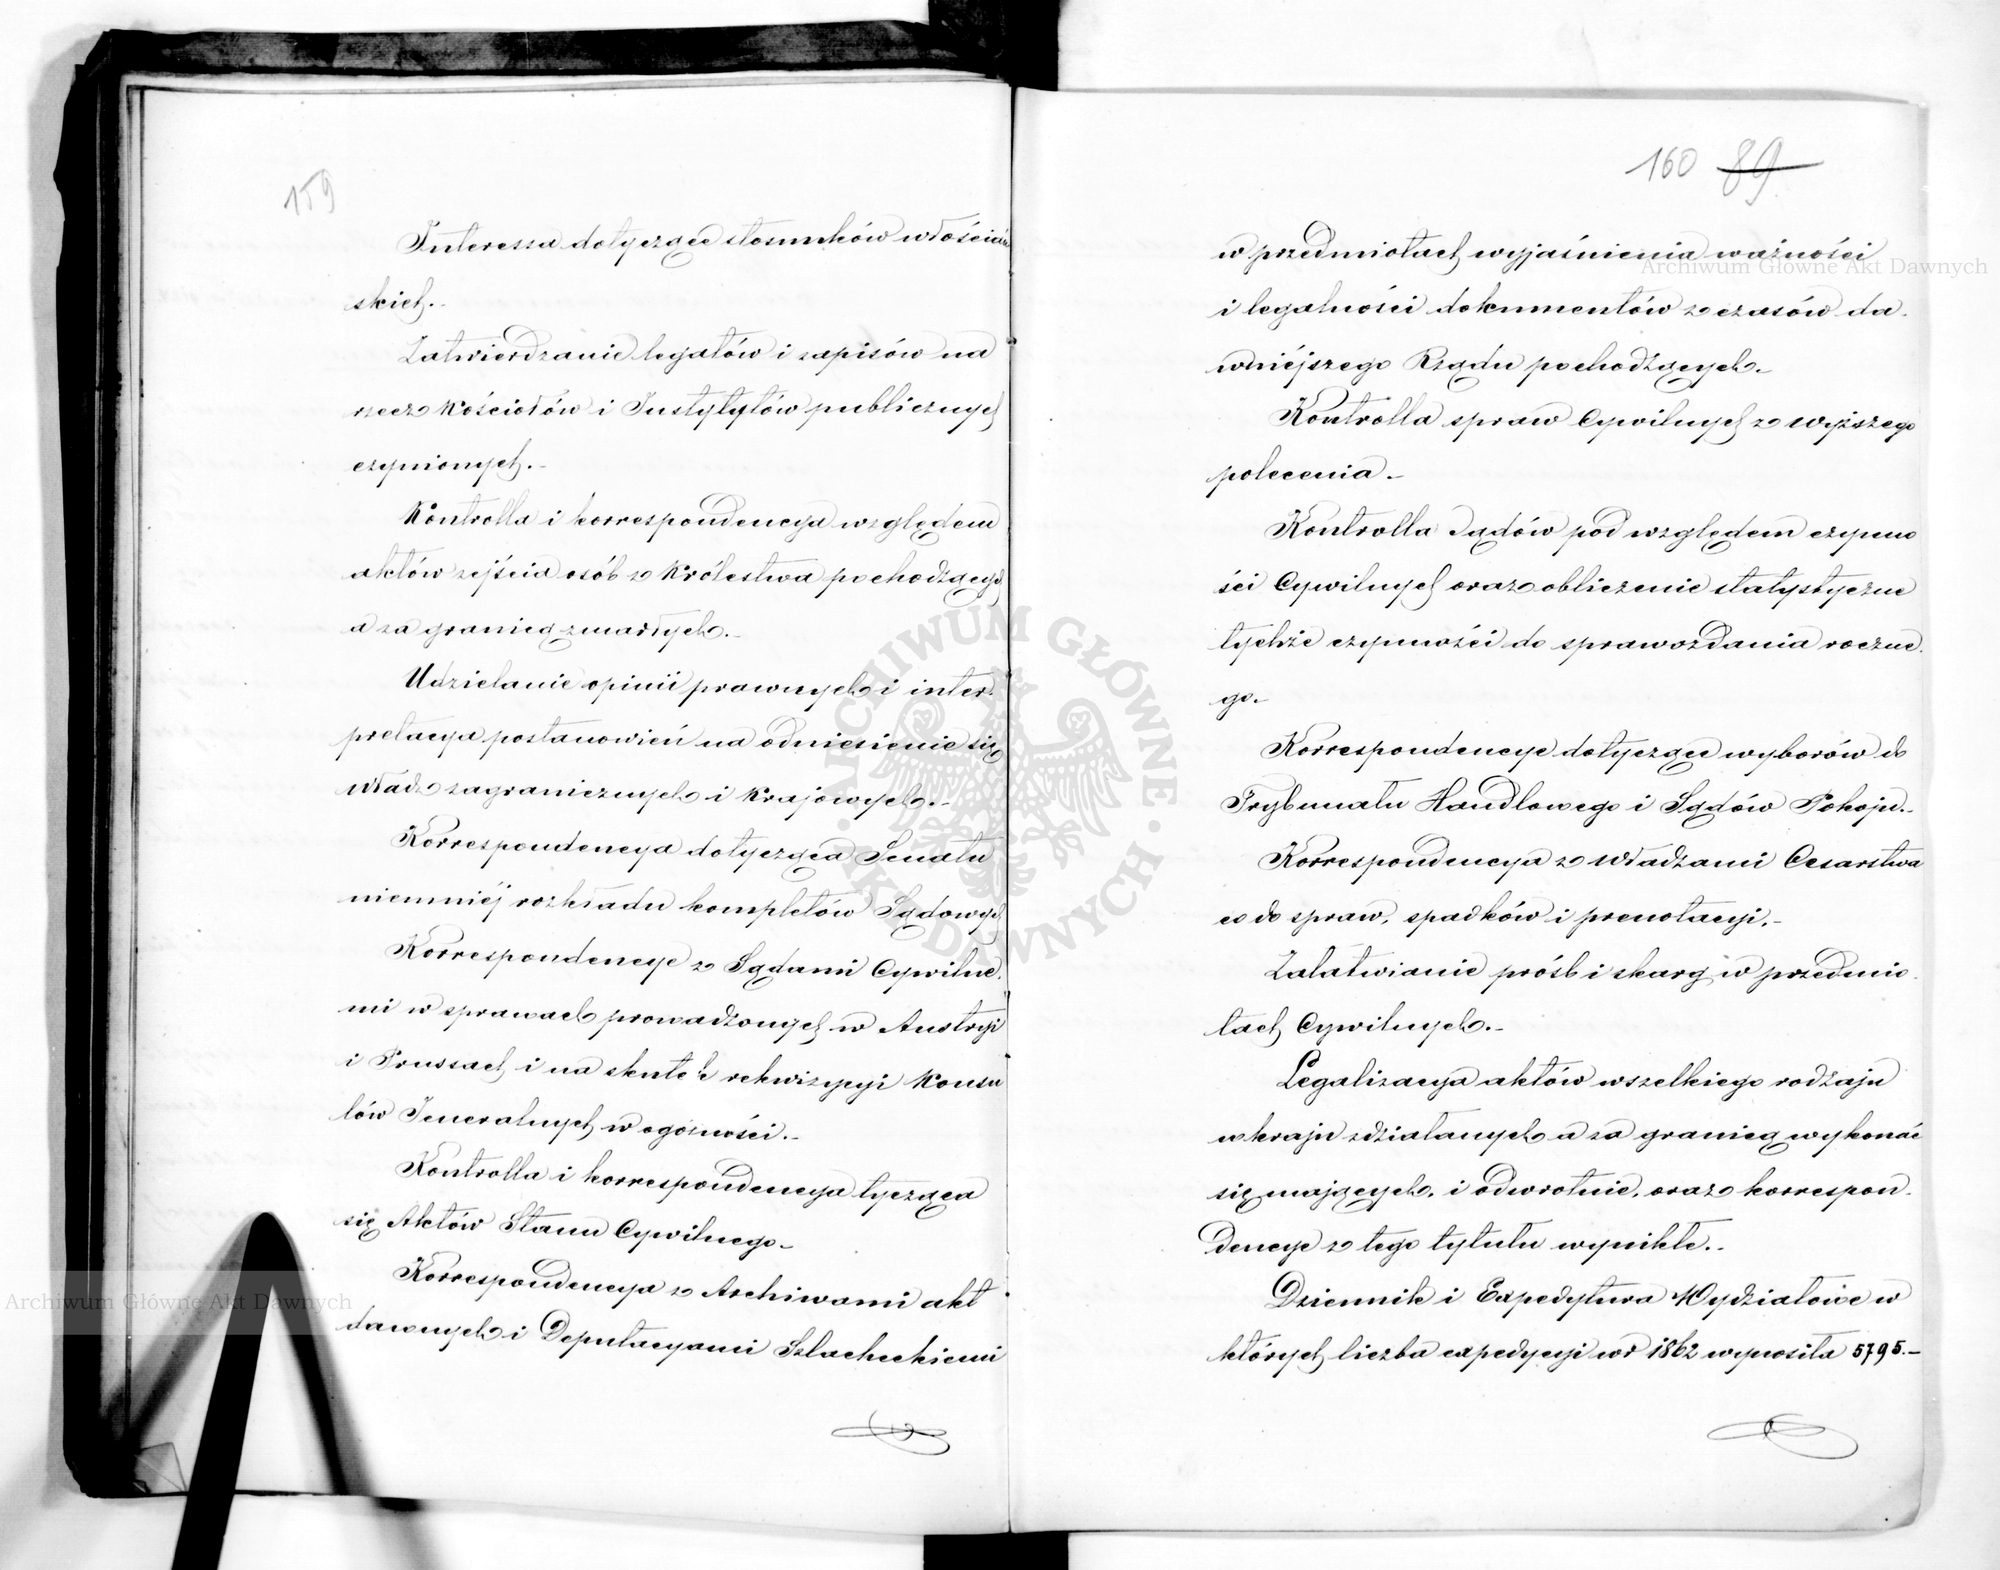 159
Interessa dotyczące stosunków włościań
skich.-
Zatwierdzanie legatów i zapisów na
rzecz Kościołów i Instytytów publicznych
czynionych.-
Kontrolla i korrespondencya względem
aktów zejścia osób z Królestwa pochodzących
a za granicą zmarłych.-
Udzielanie opinii prawnych i inter-
pretacya postanowień na odniesienie się
Władz zagranicznych i Krajowych.-
Korrespondencya dotycząca Senatu
niemniéj rozkładu kompletów Sądowych
Korrespondencye z Sądami Cywilne-
mi w sprawach prowadzonych w Austryi
i Prussach i na skutek rekwizycyi Konsu
lów Jeneralnych w ogólności.-
Kontrolla i korrespondencya tycząca
się Aktów Stanu Cywilnego.-
Korrespondencya z Archiwami akt
dawnych i Deputacyami Szlacheckiemi
160 89
w przedmiotach wyjaśnienia ważności
i legalności dokumentów z czasów da-
wniéjszego Rządu pochodzących.-
Kontrolla spraw Cywilnych z wyższego
polecenia.-
Kontrolla Sądów pod względem czynno
ści Cywilnych oraz obliczenie statystyczne
tychże czynności do sprawozdania roczne-
go.-
Korrespondencye dotyczące wyborów do
Trybunału Handlowego i Sądów Pokoju.-
Korrespondencya z Władzami Cesarstwa
co do spraw, spadków i prenotacyi.-
Załatwianie próśb i skarg w przedmio-
tach Cywilnych.-
Legalizacya aktów wszelkiego rodzaju
w kraju zdziałanych a za granicą wykonać
się mających, i odwrotnie, oraz korrespon-
dencye z tego tytułu wynikłe.-
Dziennik i Expedytura Wydziałowe w
których liczba expedycyi w r 1862 wynosiła 5795.-
Archiwum Główne Akt Dawnych
Archiwum Główne Akt Dawnych
ARCHIWUM GŁÓWNE · AKT DAWNYCH ·